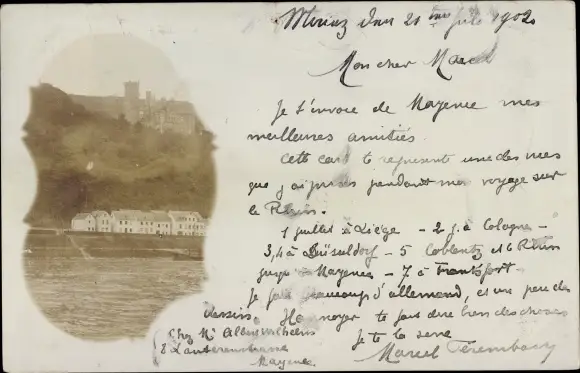 Mainz den 21 ème juil 1902
Mon cher Marcel
Je t'envoie de Mayence mes
meilleures amitiés.
Cette carte te représente une des vues
que j'ai prises pendant mon voyage sur
le Rhin.
1 juillet à Liège - 2 j. à Cologne -
3, 4 à Düsseldorf - 5 Coblentz et le Rhin
jusqu'à Mayence - 7 à Frankfort -
Je fais beaucoup d'allemand, et un peu de
dessin. te fait dire bien des choses
Je te la serre
Marcel
Chez Mr Albert Wilhelm
8
Mayence.